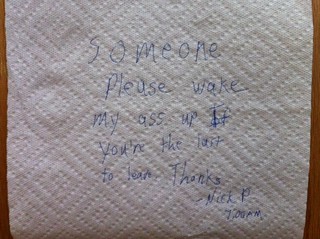 Someone
Please wake
my ass up If
you're the last
to leave. Thanks
- Nick P.
7:00 PM.